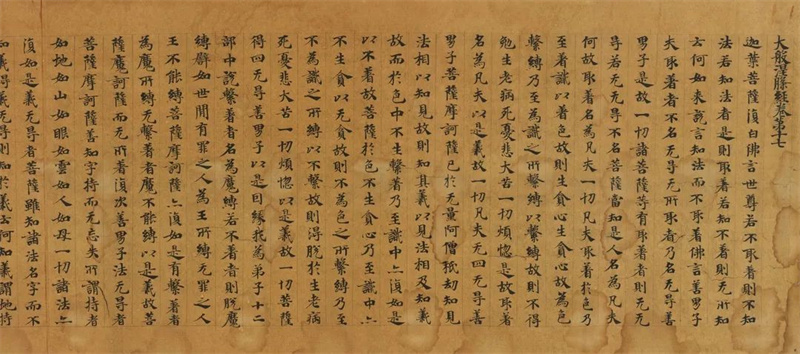 大般涅槃經卷第十七
迦葉菩薩復白佛言世尊若不取著則不知
法若知法者則是取著若知不著則无所知
云何如来說言知法而不取著佛言善男子
夫取著者不名无㝵无所取著乃名无㝵善
男子是故一切諸菩薩等有取著者則无无
㝵若无无㝵不名菩薩當知是人名為凡夫
何故取著名為凡夫一切凡夫取著於色乃
至著識以著色故則生貪心生貪心故為色
繫縛乃至為識之所繫縛以繫縛故則不得
勉生老病死憂悲大苦一切煩惱是故取著
名為凡夫以是義故一切凡夫无四无㝵善
男子菩薩摩訶薩已於无量阿僧祇劫知見
法相以知見故則知其義以見法相及知義
故而於色中不生繫著乃至識中亦復如是
以不著故菩薩於色不生貪心乃至識中亦
不生貪以无貪故則不為色之所繫縛乃至
不為識之所縛以不繫故則得脫於生老病
死憂悲大苦一切煩惱以是義故一切菩薩
得四无㝵善男子以是因緣我為弟子十二
部中說繫著者名為魔縛若不著者則脫魔
縛辟如世間有罪之人為王所縛无罪之人
王不能縛菩薩摩訶薩亦復如是有繫著者
為魔所縛无繫著者魔不能縛以是義故菩
薩摩訶薩而无所著復次善男子法无㝵者
菩薩摩訶薩善知字持而无忘失所謂持者
如地如山如眼如雲如人如母一切諸法亦
復如是義无㝵者菩薩雖知諸法名字而不
知義得義无㝵則知於義云何知義謂地持